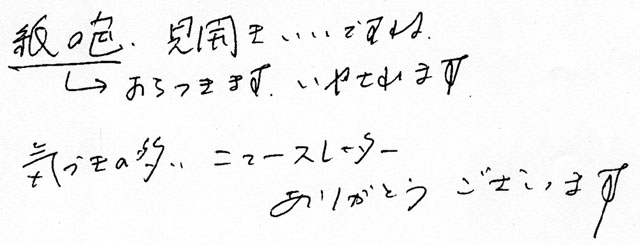 紙の色、見開きいいですね。
↳ おちつきます。いやされます
気づきの多い ニュースレター
ありがとう ございます